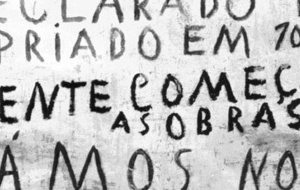 ECLARADO
PRIADO EM 70
ENTE COMEÇ
AS OBRAS
AMOS NO